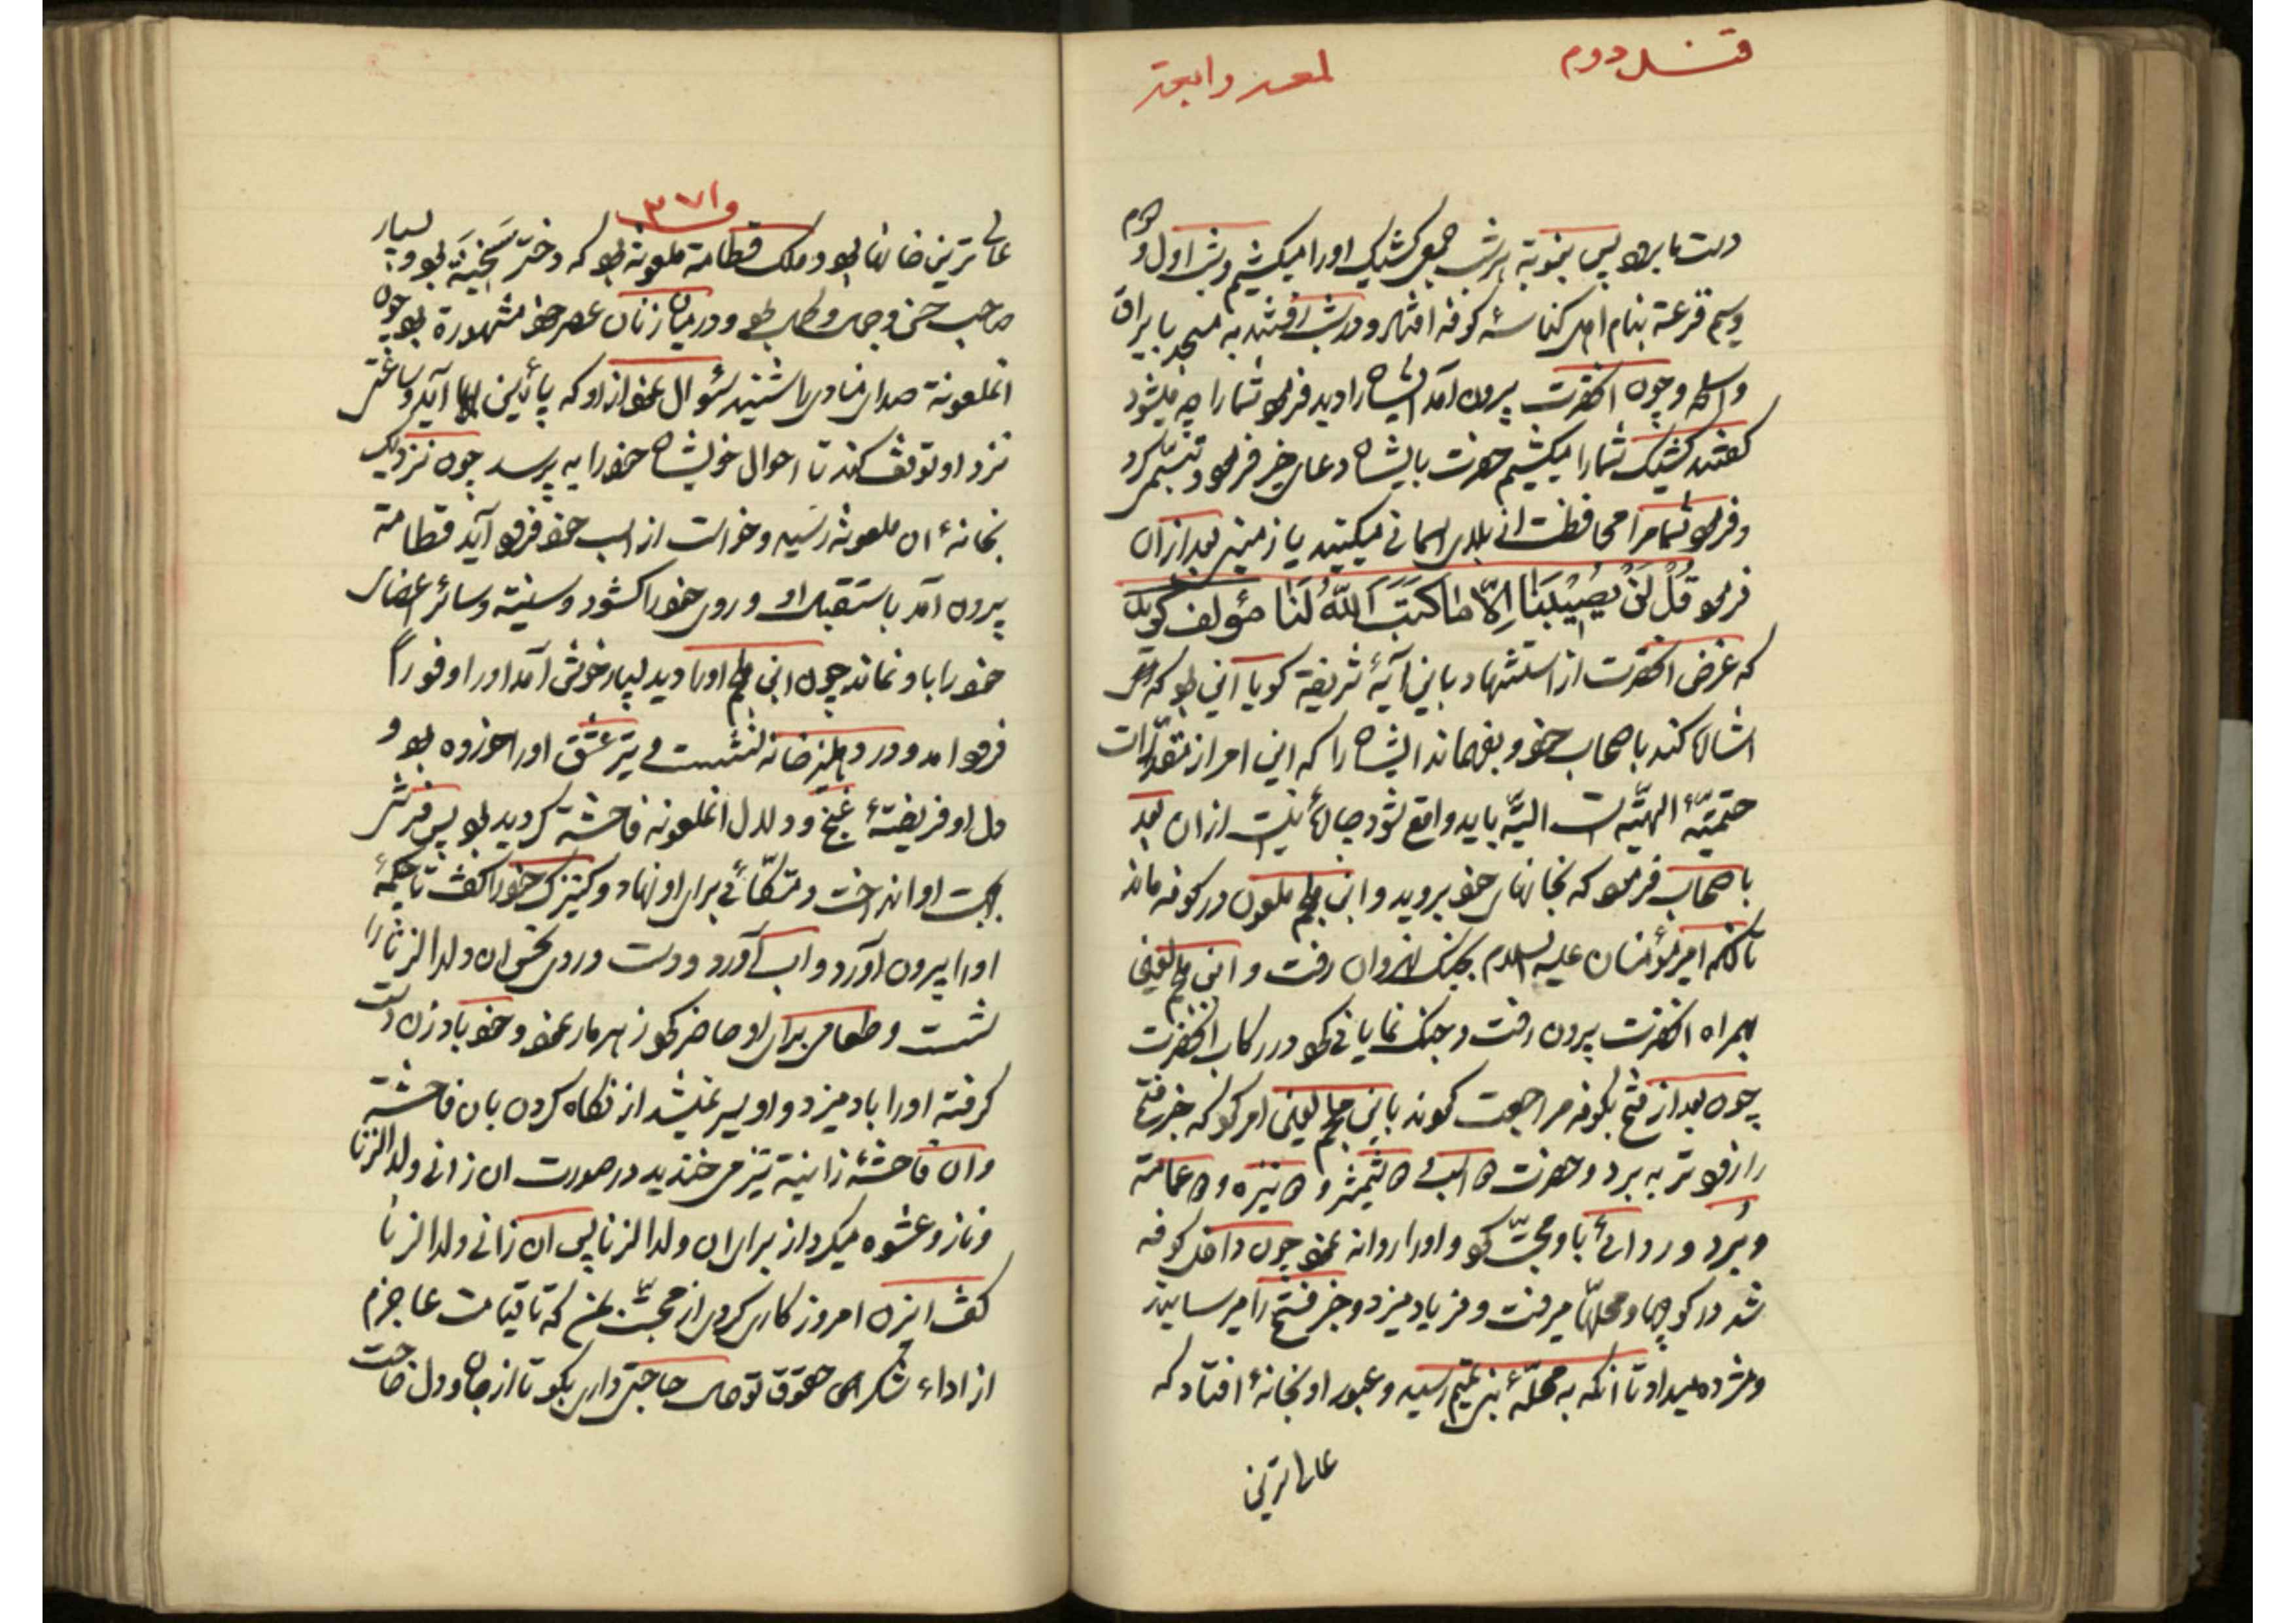 قسل دوم
لمعه رابعة
دست ما برد پس بنوبة هر شب جمعی کشیک اورا میکشیم و شب اول و دوم
وسیم قرعة بنام اهل کناسهٔ کوفه افتاد و در شب رفتند به مسجد با یراق
واسلحه و چون انحضرت بیرون آمد ایشان را دید فرمود شمارا چه میشود
گفتند کشیک شمارا میکشیم حضرت بایشان دعای خیر فرمود و تبسم کرد
وفرمود شما مرا محافظت از بلای اسمانی میکنید یا زمینی بعد از ان
فرمود قُلْ لَنْ یُصِیْبَنَا اِلّا مَا کَتَبَ اللّهُ لَنَا مؤلف گوید
که غرض انحضرت از استشهاد باین آیهٔ شریفه گویا این بود که
اشاره کند باصحاب خود و بفهماند ایشان را که این امر از مقدّرات
حتمیّهٔ الهیّه است البتّه باید واقع شود چارهٔ نیست از ان بعد
باصحاب فرمود که بخانهای خود بروید و ابن ملجم ملعون در کوفه ماند
تا انکه امیرمؤمنان علیه السلام بجنک نهروان رفت و ابن ملجم لعین
همراه انحضرت بیرون رفت و جنک نمایانی کرد در رکاب انحضرت
چون بعد از فتح بکوفه مراجعت کردند باین ملجم لعین امر کرد که خبر فتح
را زودتر به برد و حضرت اسبی شمشیر و نیزه و عمامة
وبُرد و ردائی باو محبّت کرد و اورا روانه نمود چون داخل کوفه
شد در کوچها و محلّها میرفت و فریاد میزد و خبر فتح را میرسانید
ومژده میداد تا انکه به محلّهٔ بنی تمیم رسید و عبور او بخانهٔ افتاد که
عالی ترین
و۳۷۱
عالی ترین خانها بود و ملک قطامة ملعونة بود که دختر سَخِیْنَه بود و بسیار
صاحب حسن و جمال و کمال بود و در میان زنان عصر خود مشهورة بود چون
انملعونة صدای منادی را شنید سئوال نمود از او که پائین بیا و ساعتی
نزد او توقف کند تا احوال خویشان خود را به پرسد چون نزدیک
بخانهٔ ان ملعونه رسید و خواست از اسب خود فرود آید قطامة
بیرون آمد باستقبال او و روی خود را گشود و سینه و سائر اعضای
خود را باو نماند چون ابن ملجم اورا دید بسیار خوش آمد اورا و فوراً
فرود امد و در دهلیز خانه نشست و تیر عشق اورا خورده بود و
دل او فریفتهٔ غنج و دلال انملعونه فاحشة گردید بود پس فرش
بجهت او انداخت و متکّائی برای او نهاد و کنیزک خود را گفت تا چکمهٔ
اورا بیرون آورد و ابی آورد و دست و روی نحس ان ولد الزنا را
شست و طعامی برای او حاضر کرد زهر مار نمود و خود باد زن دست
گرفته اورا باد میزد و او سیر نمیشد از نگاه کردن بان فاحشة
وان فاحشهٔ زانیة نیز می خندید در صورت ان زانی ولد الزنا
وناز و عشوه میکرد از برای ان ولد الزنا پس ان زانی ولد الزنا
گفت ایزن امروز کاری کردی از محبّت بمن که تا قیامت عاجزم
از اداء شکرهای حقوق تو حال حاجتی داری بکو تا از جان و دل حاجت